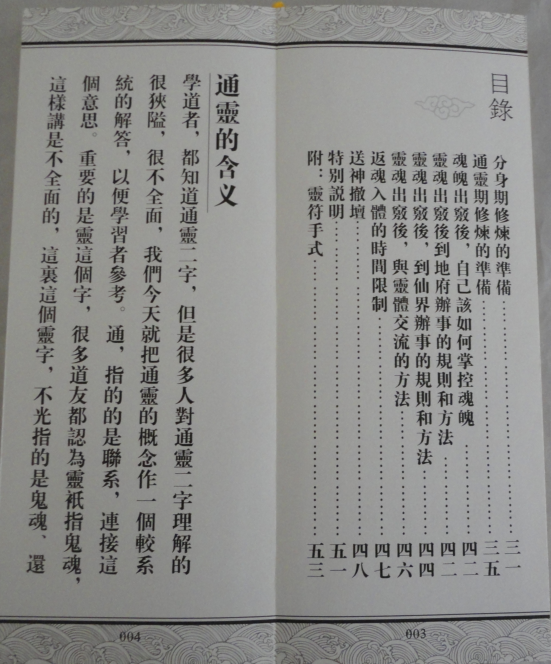 目錄
分身期修煉的準備……………………三一
通靈期修煉的準備……………………三五
魂魄出竅後，自己該如何掌控魂魄……………四二
靈魂出竅後到地府辦事的規則和方法……………四二
靈魂出竅後，到仙界辦事的規則和方法……………四四
靈魂出竅後，與靈體交流的方法……………四六
返魂入體的時間限制……………………四七
送神撤壇……………………四八
特別説明……………………五一
附：靈符手式……………………五三
003
通靈的含义
學道者，都知道通靈二字，但是很多人對通靈二字理解的
很狹隘，很不全面，我們今天就把通靈的概念作一個較系
統的解答，以便學習者參考。通，指的的是聯系，連接這
個意思。重要的是靈這個字，很多道友都認為靈衹指鬼魂，
這樣講是不全面的，這裏這個靈字，不光指的是鬼魂、還
004